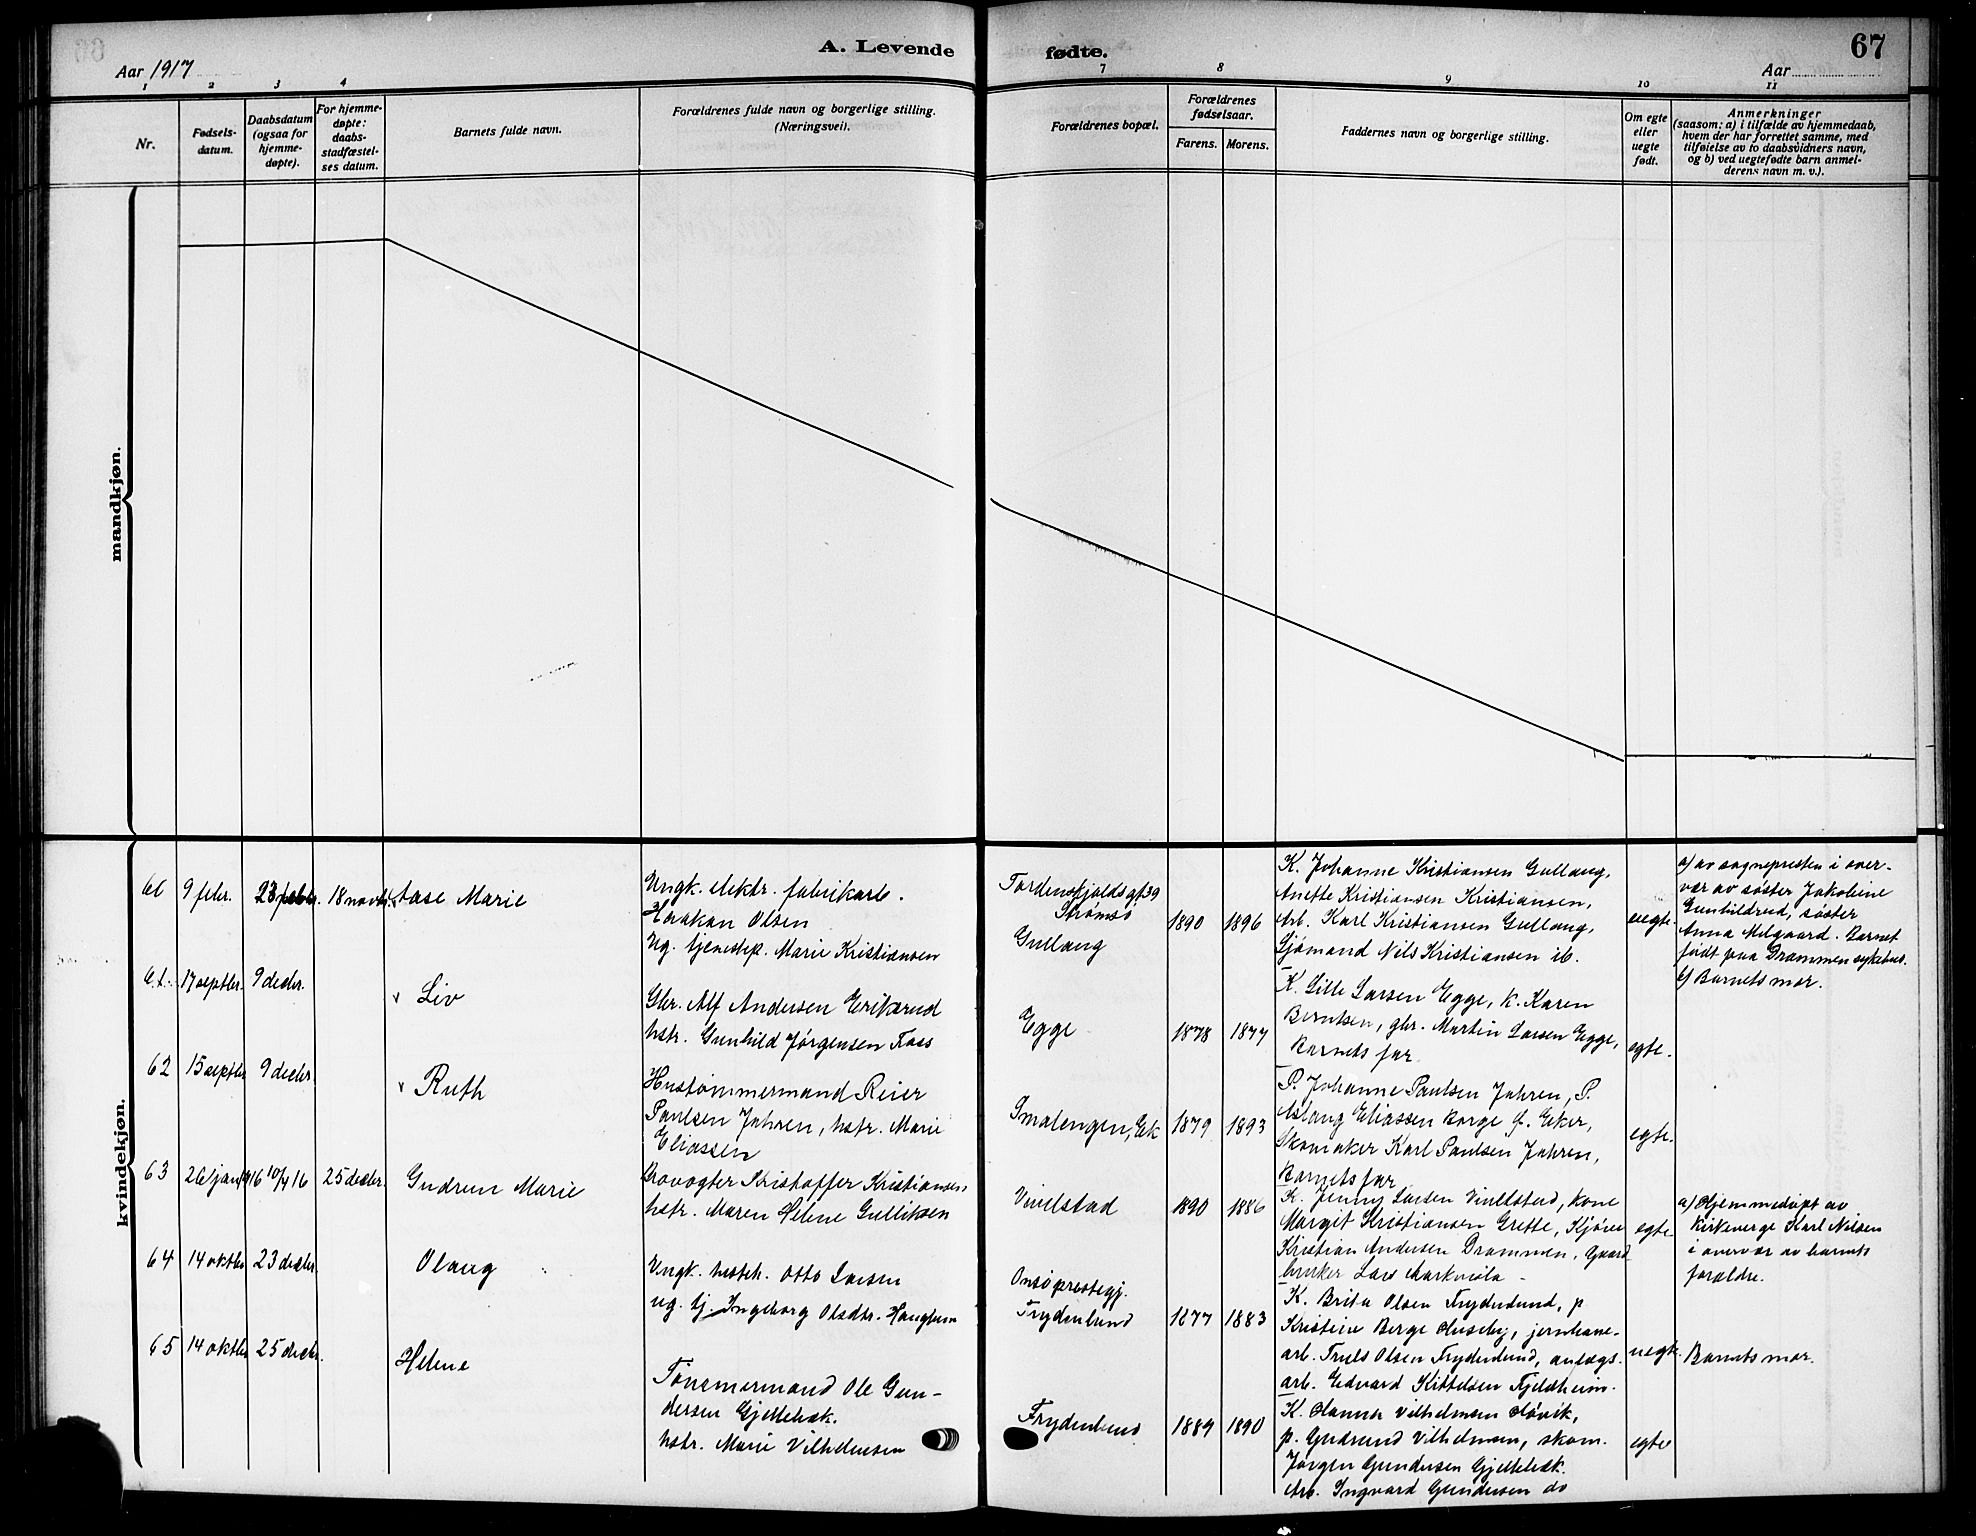 A. Levende fødte. 67
Aar 1917
Aar
1 2 3 4 7 8 9 10 11
Nr.
Fødsels-
datum.
Daabsdatum
(ogsaa for
hjemme-
døpte).
For hjemme-
døpte:
daabs-
stadfæstel-
ses datum.
Barnets fulde navn.
Forældrenes fulde navn og borgerlige stilling.
(Næringsvei).
Forældrenes bopæl.
Forældrenes
fødselsaar.
Farens. Morens.
Faddernes navn og borgerlige stilling.
Om egte
eller
uegte
født.
Anmerkninger
(saasom: a) i tilfælde av hjemmedaab,
hvem der har forrettet samme, med
tilføielse av to daabsvidners navn,
og b) ved uegtefødte barn anmel-
derens navn m. v.).
mandkjøn.
kvindekjøn.
9 febr.
23 febr.
18 novbr.
Aase Marie
Ungk. elektr. fabrikarb.
Haakan Olsen
Ug. tjenestep. Marie Kristiansen
Tordenskjoldsgt 39
Strømsø
Gullaug
1890
1896
K. Johanne Kristiansen Gullaug,
Anette Kristiansen Kristiansen,
Arb. Karl Kristiansen Gullaug,
Sjømand Nils Kristiansen ib.
uegte.
a) av sognepresten i over-
vær av søster Jakobine
Gunhildrud, søster
Anna Melgaard. Barnet
født paa Drammen sykehus.
b) Barnets mor.
61.
17 septbr.
9 decbr.
Liv
Gbr. Alf Andersen Eriksrud
hstr. Gunhild Jørgensen Foss
Egge
1878
1877
K. Lille Larsen Egge, k. Karen
Berntsen, gbr. Martin Larsen Egge,
Barnets far.
egte.
62
15 septbr
9 decbr.
Ruth
Hustømmermand Reier
Paulsen Jahren, hstr. Marie
Eliassen
Smalengen, Ek
1879
1893
P. Johanne Paulsen Jahren, P.
Aslaug Eliassen Borge f. Eker,
Skomaker Karl Paulsen Jahren,
Barnets far
egte.
63
26 jan 1916
10/4 16
25 decbr.
Gudrun Marie
Brovogter Kristoffer Kristiansen
hstr. Maren Helene Gulliksen
Vivelstad
1890
1886
K. Jenny Larsen Vivelstad, kone
Margit Kristiansen Grette, Kjører
Kristian Andersen Drammen, Gaard
bruker Lars
egte
a) Hjemmedøpt av
kirkeverge Karl Nilsen
i overvær av barnets
forældre.
64
14 oktbr
23 decbr.
Olaug
Ungk. Otto Larsen
ug. tj. Ingeborg Olsdtr. Haugtun
Onsø prestegj.
Frydenlund
1877
1883
K. Brita Olsen Frydenlund, p
Kristine Berge Huseby, jernbane-
arb. Truls Olsen Frydenlund, anlægs-
arb. Edvard Kittelsen Fjeldheim.
uegte.
Barnets mor.
65
14 oktbr
25 decbr.
Helene
Tømmermand Ole Gun-
dersen Gjellebæk.
hstr. Marie Vilhelmsen
Frydenlund
1889
1890
K. Hanna Vilhelmsen Høvik,
p. Gudrund Vilhelmsen, skom.
Jørgen Gundersen Gjellebæk.
Arb. Ingvard Gundersen do
egte